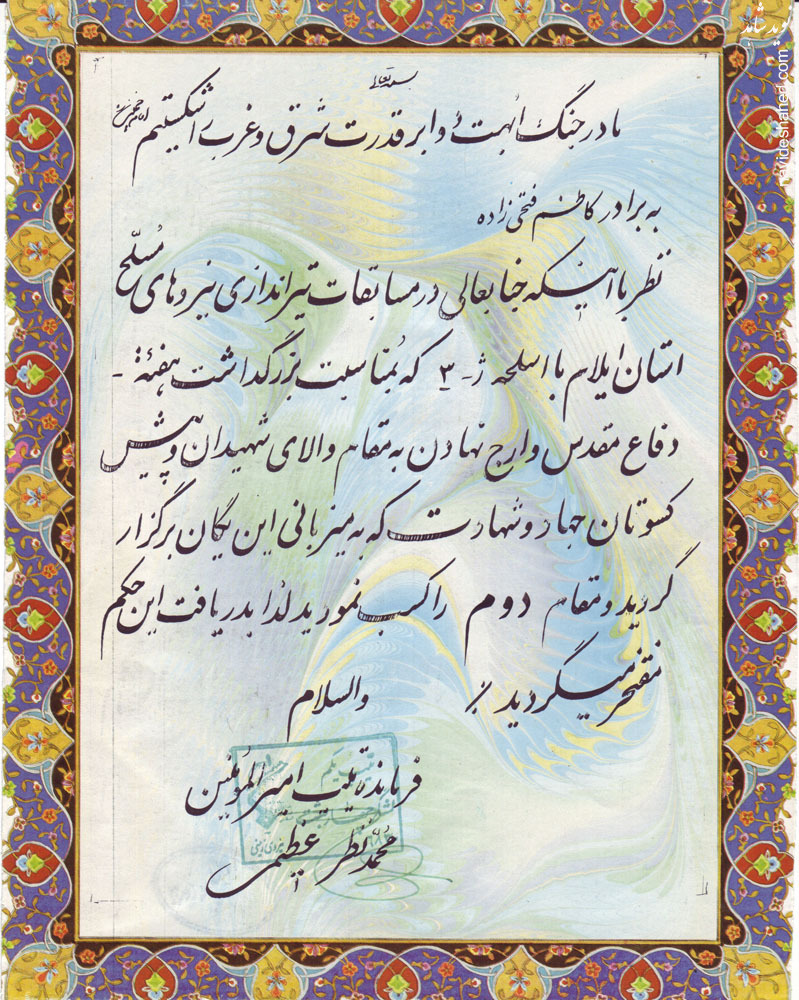 بسمه تعالی
ما در جنگ ابهت دو ابر قدرت شرق و غرب را شکستیم امام خمینی
به برادر کاظم فتحی زاده
نظر با اینکه جنابعالی در مسابقات تیراندازی نیروهای مسلح
استان ایلام با اسلحه ژ-۳ که بمناسبت بزرگداشت هفته -
دفاع مقدس و ارج نهادن به مقام والای شهیدان و پیش
کسوتان جهاد و شهادت که به میزبانی این یگان برگزار
گردید و مقام دوم را کسب نمودید لذا بدریافت این حکم
مفتخر میگردید
والسلام
فرمانده تیپ امیرالمؤمنین
محمد نظر عظیمی
نوید شاهد
navideshahed.com